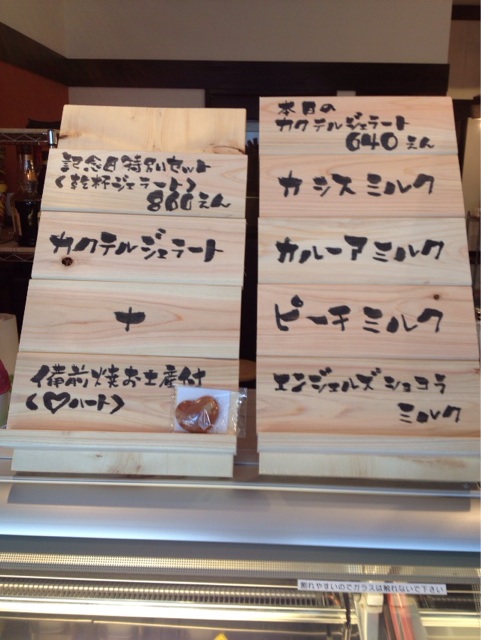 記念日特別セット
(乾杯ジェラート)
860えん
カクテルジェラート
+
備前焼お土産付
(♡ハート)
本日の
カクテルジェラート
640えん
カシスミルク
カルーアミルク
ピーチミルク
エンジェルズショコラ
ミルク
割れやすいのでガラスは触れないで下さい